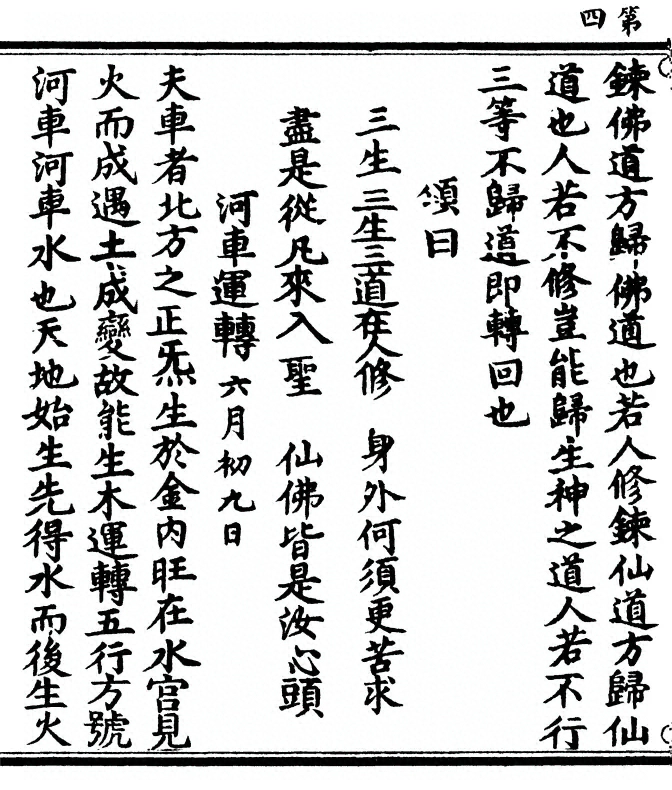 第四
鍊佛道方歸佛道也若人修鍊仙道方歸仙
道也人若不修豈能歸生神之道人若不行
三等不歸道即轉回也
頌曰
三生三生三道在人修　身外何須更苦求
盡是從凡來入聖　仙佛皆是汝心頭
河車運轉六月初九日
夫車者北方之正炁生於金內旺在水宮見
火而成遇土成變故能生木運轉五行方號
河車河車水也天地始生先得水而後生火